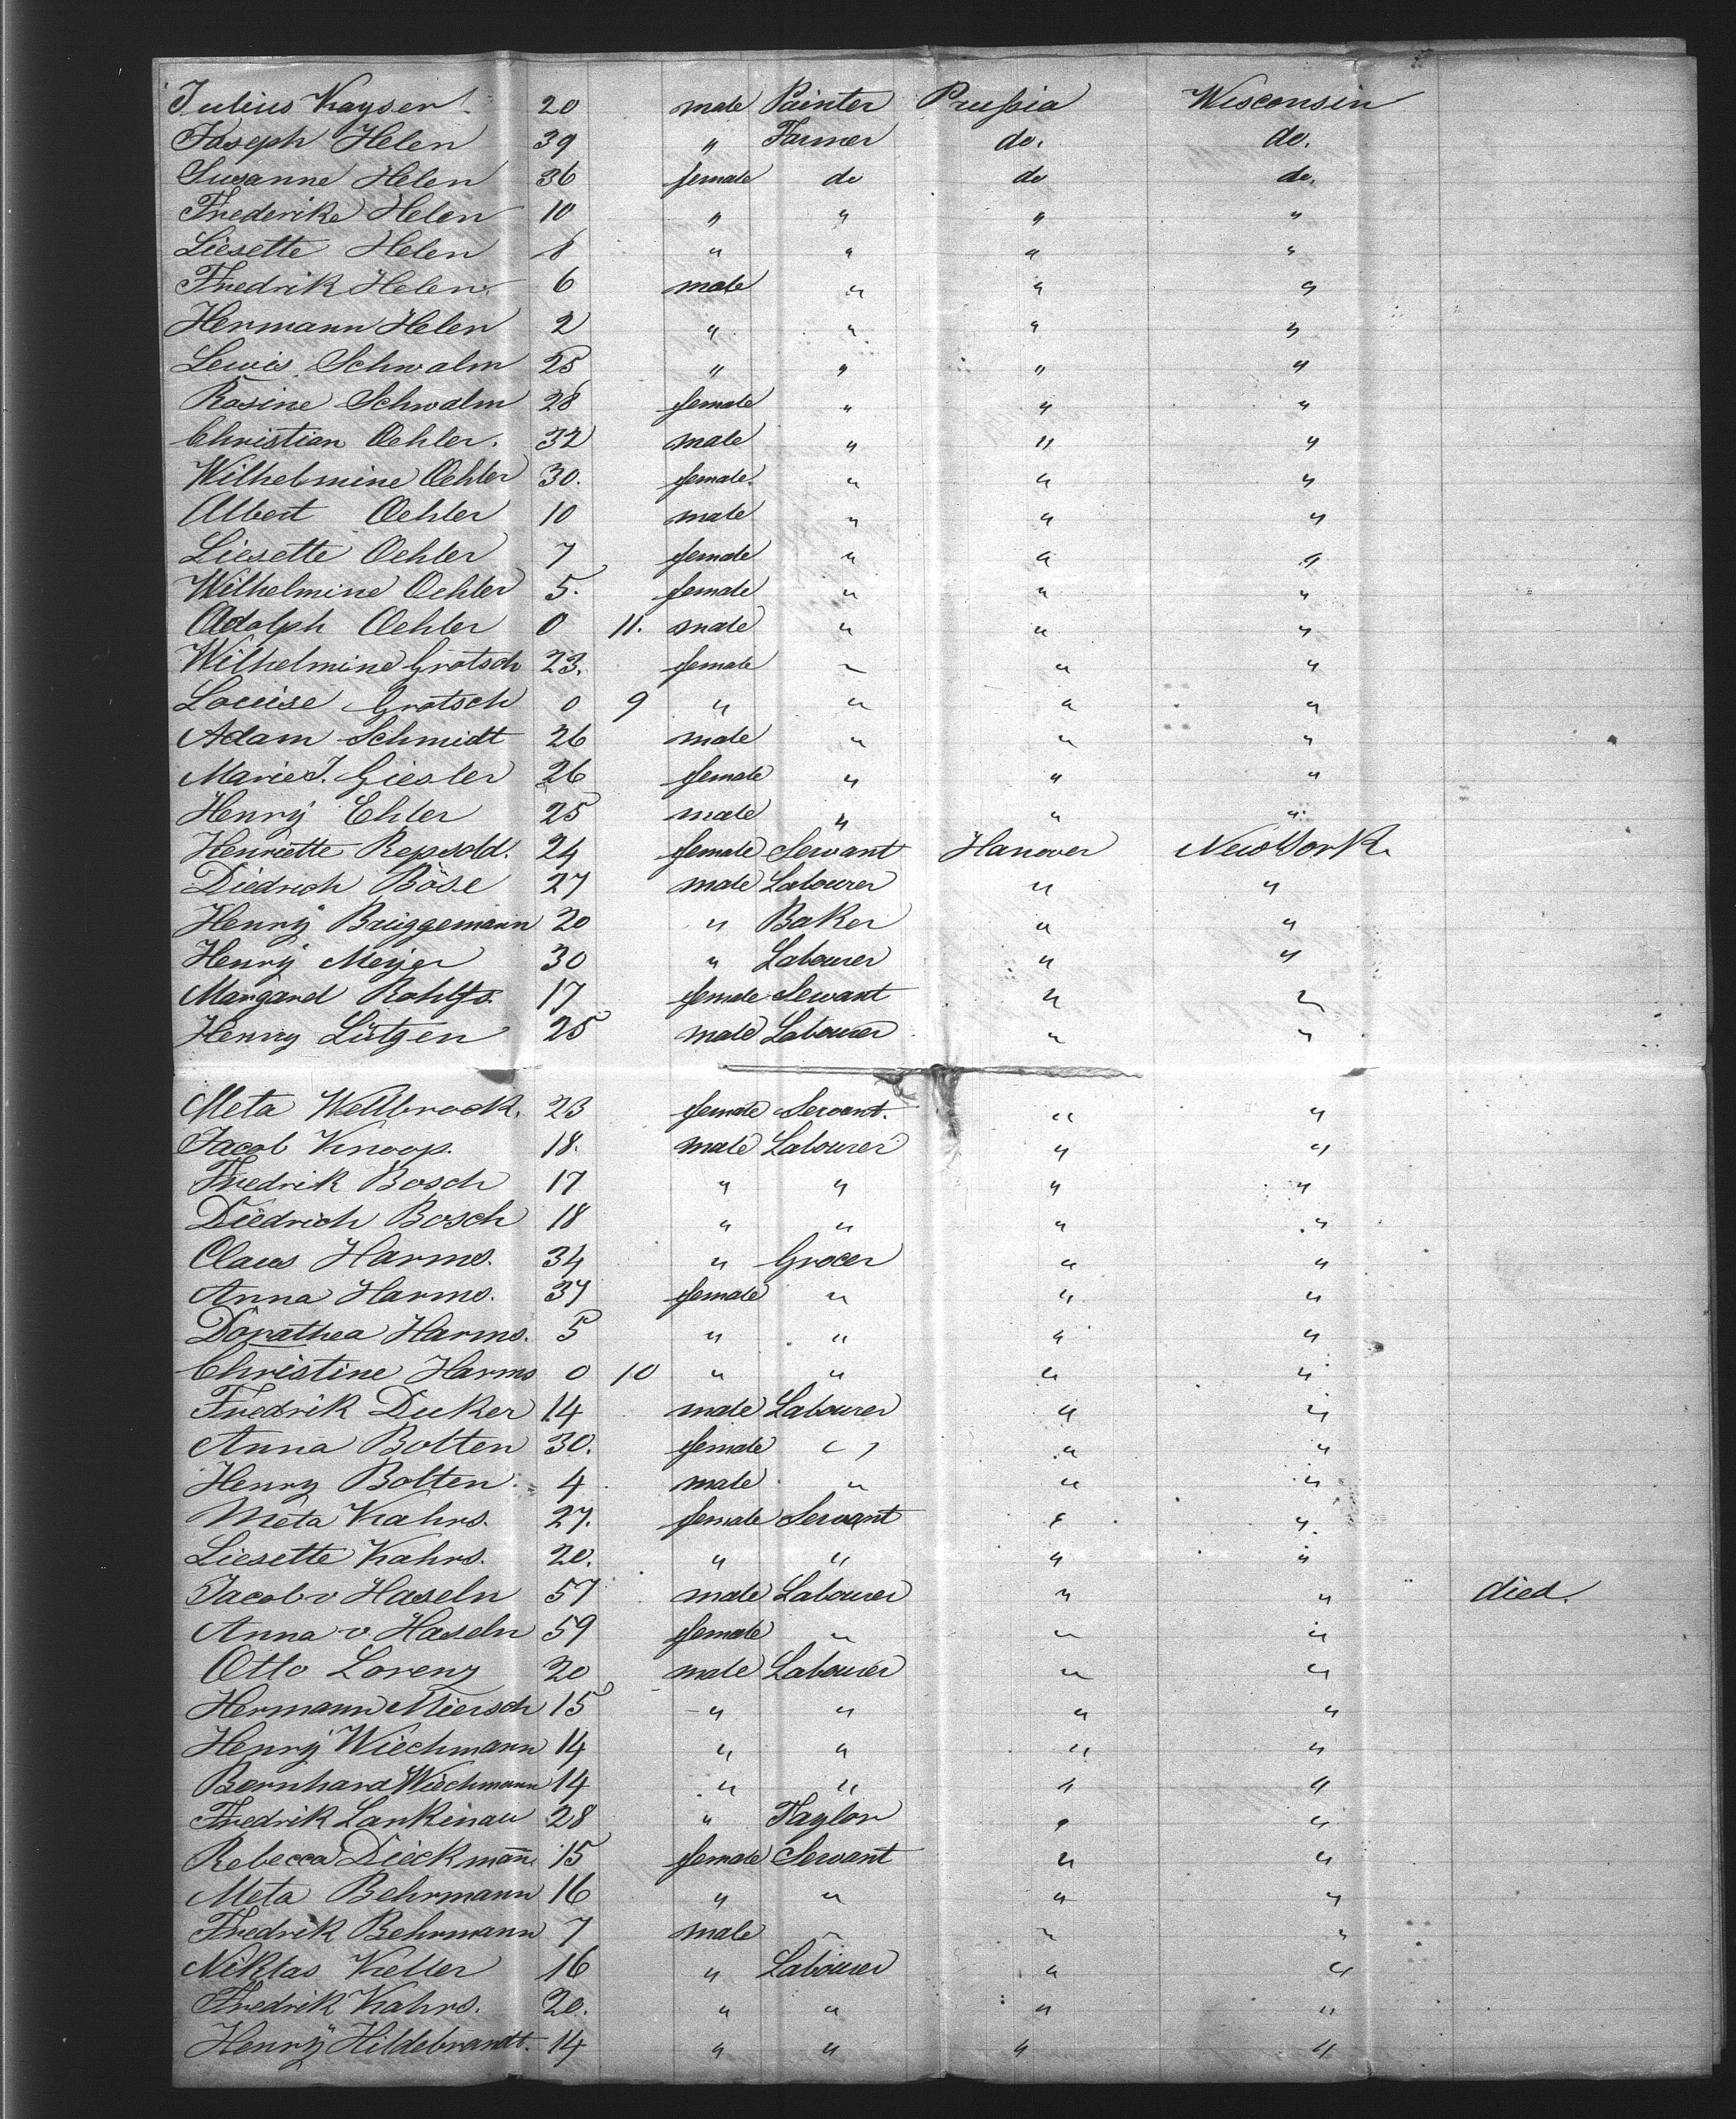 Julius Kayser 20 male Painter Prussia Wisconsin
Joseph Helen 39 " Farmer do. do.
Susanne Helen 36 female do do do.
Frederike Helen 10 " " " "
Liesette Helen 8 " " " "
Fredrik Helen 6 male " " "
Hermann Helen 2 " " " "
Lewis Schwalm 25 " " " "
Rosine Schwalm 28 female " " "
Christian Oehler. 32 male " " "
Wilhelmine Oehler 30. female " " "
Albert Oehler 10 male " " "
Liesette Oehler 7 female " " "
Wilhelmine Oehler 5. female " " "
Adolph Oehler 0 11. male " " "
Wilhelmine Grotsch 23. female " " "
Louise Grotsch 0 9 " " " "
Adam Schmidt 26 male " " "
Marie J. Giesler 26 female " " "
Henry Ehler 25 male " " "
Henriette Repsold. 24 female Servant Hanover New York
Diedrich Böse 27 male Labourer " "
Henry Brüggemann 20 " Baker " "
Henry Meyer 30 " Labourer " "
Margard Rohlfs. 17 female Servant " "
Henry Lütgen 25 male Labourer " "
Meta Wellbrock. 23 female Servant. " "
Jacob Knoop. 18. male Labourer " "
Fredrik Bosch 17 " " " "
Diedrich Bosch 18 " " " "
Claus Harms. 34 " Grocer " "
Anna Harms. 37 female " " "
Dorathea Harms. 5 " " " "
Christine Harms 0 10 " " " "
Fredrik Ducker 14 male Labourer " "
Anna Bolten 30. female " " "
Henry Bolten 4 male " " "
Meta Kahrs. 27. female Servant " "
Liesette Kahrs. 20. " " " "
Jacob v Haseln 57 male Labourer " " died.
Anna v. Haseln 59 female " " "
Otto Lorenz 20 male Labourer " "
Hermann Miersch 15 " " " "
Henry Wiechmann 14 " " " "
Bernhard Wiechmann 14 " " " "
Fredrik Lankenau 28 " Taylor " "
Rebecca Dieckmann 15 female Servant " "
Meta Behrmann 16 " " " "
Fredrik Behrmann 7 male " " "
Niklas Keller 16 " Labourer " "
Fredrik Kahrs. 20. " " " "
Henry Hildebrandt. 14 " " " "